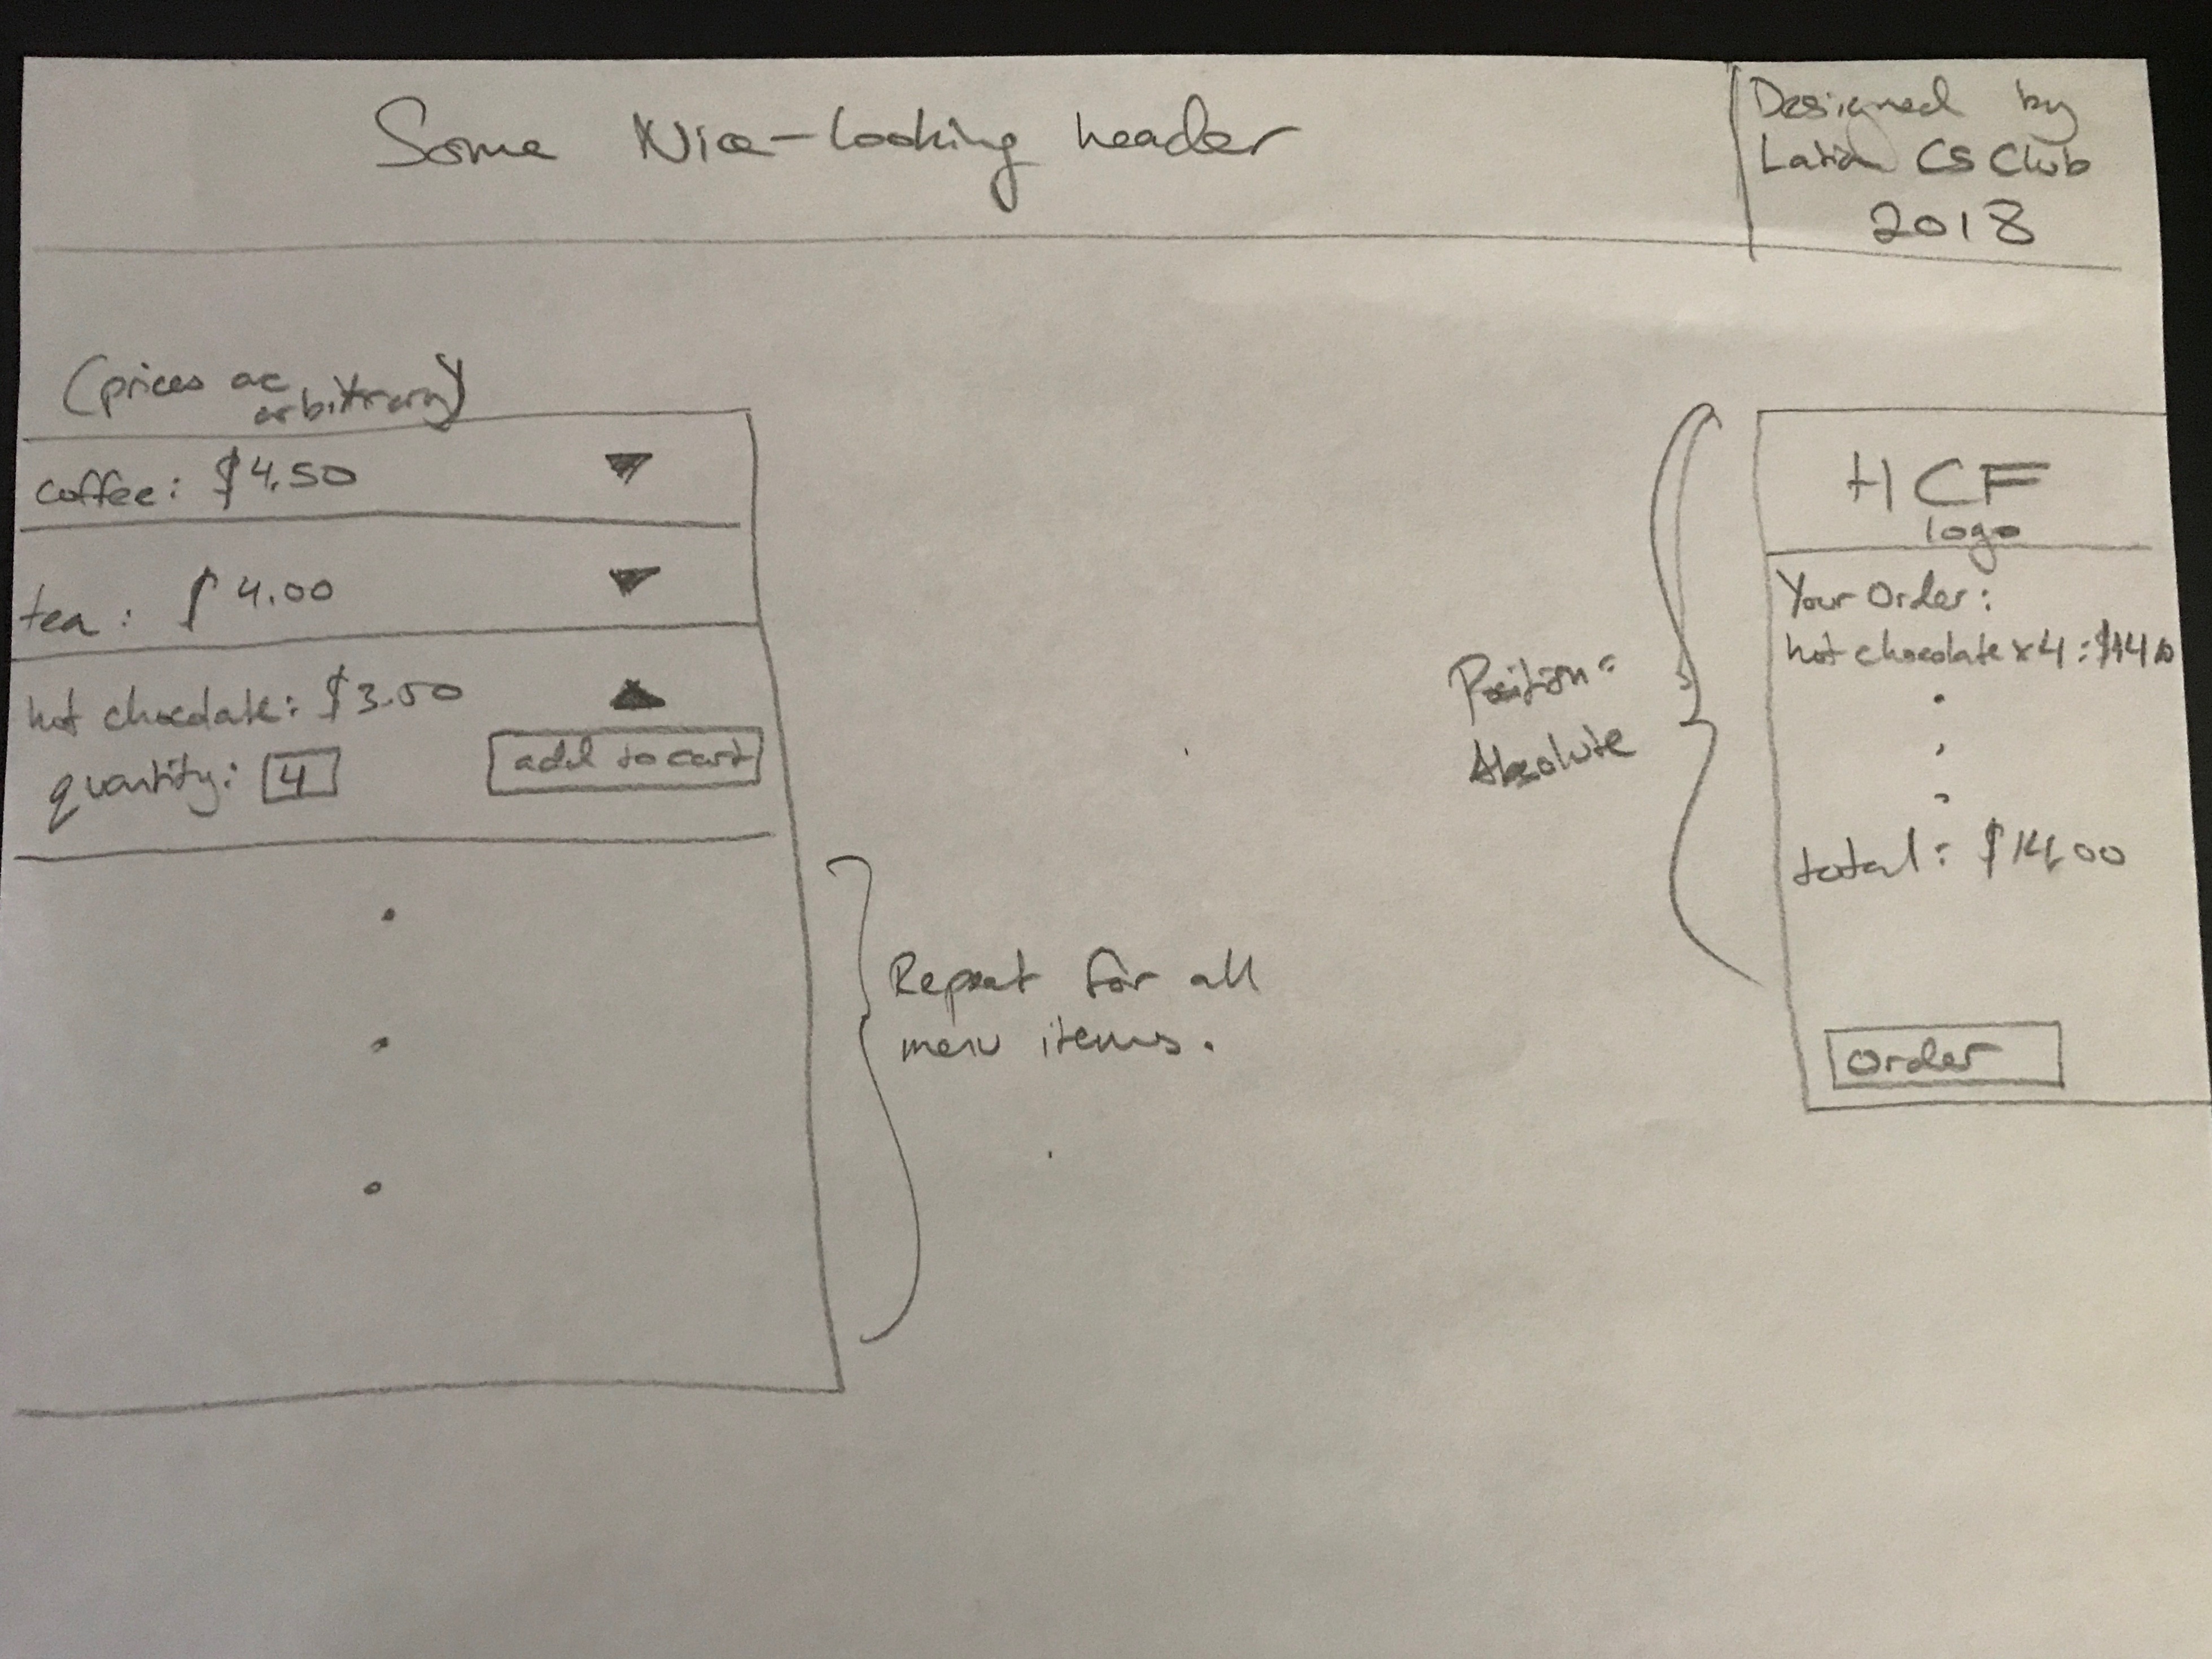 Some Nice-looking header
Designed by
Latin CS Club
2018
(prices are
arbitrary)
coffee: $4.50
tea: $4.00
hot chocolate: $3.50
quantity: 4
add to cart
Repeat for all
menu items.
Position=
Absolute
HCF
logo
Your Order:
hot chocolate x4: $14.00
total: $14.00
Order